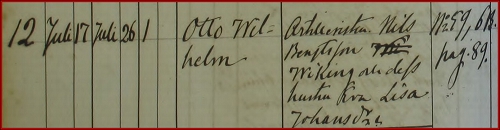 12 Juli 17 Juli 26 1 Otto Wil-
helm
Artilleristen Nils
Bengtsson
Wiking och dess
hustru Eva Lisa
Johansdr
No 59,
pag. 89.